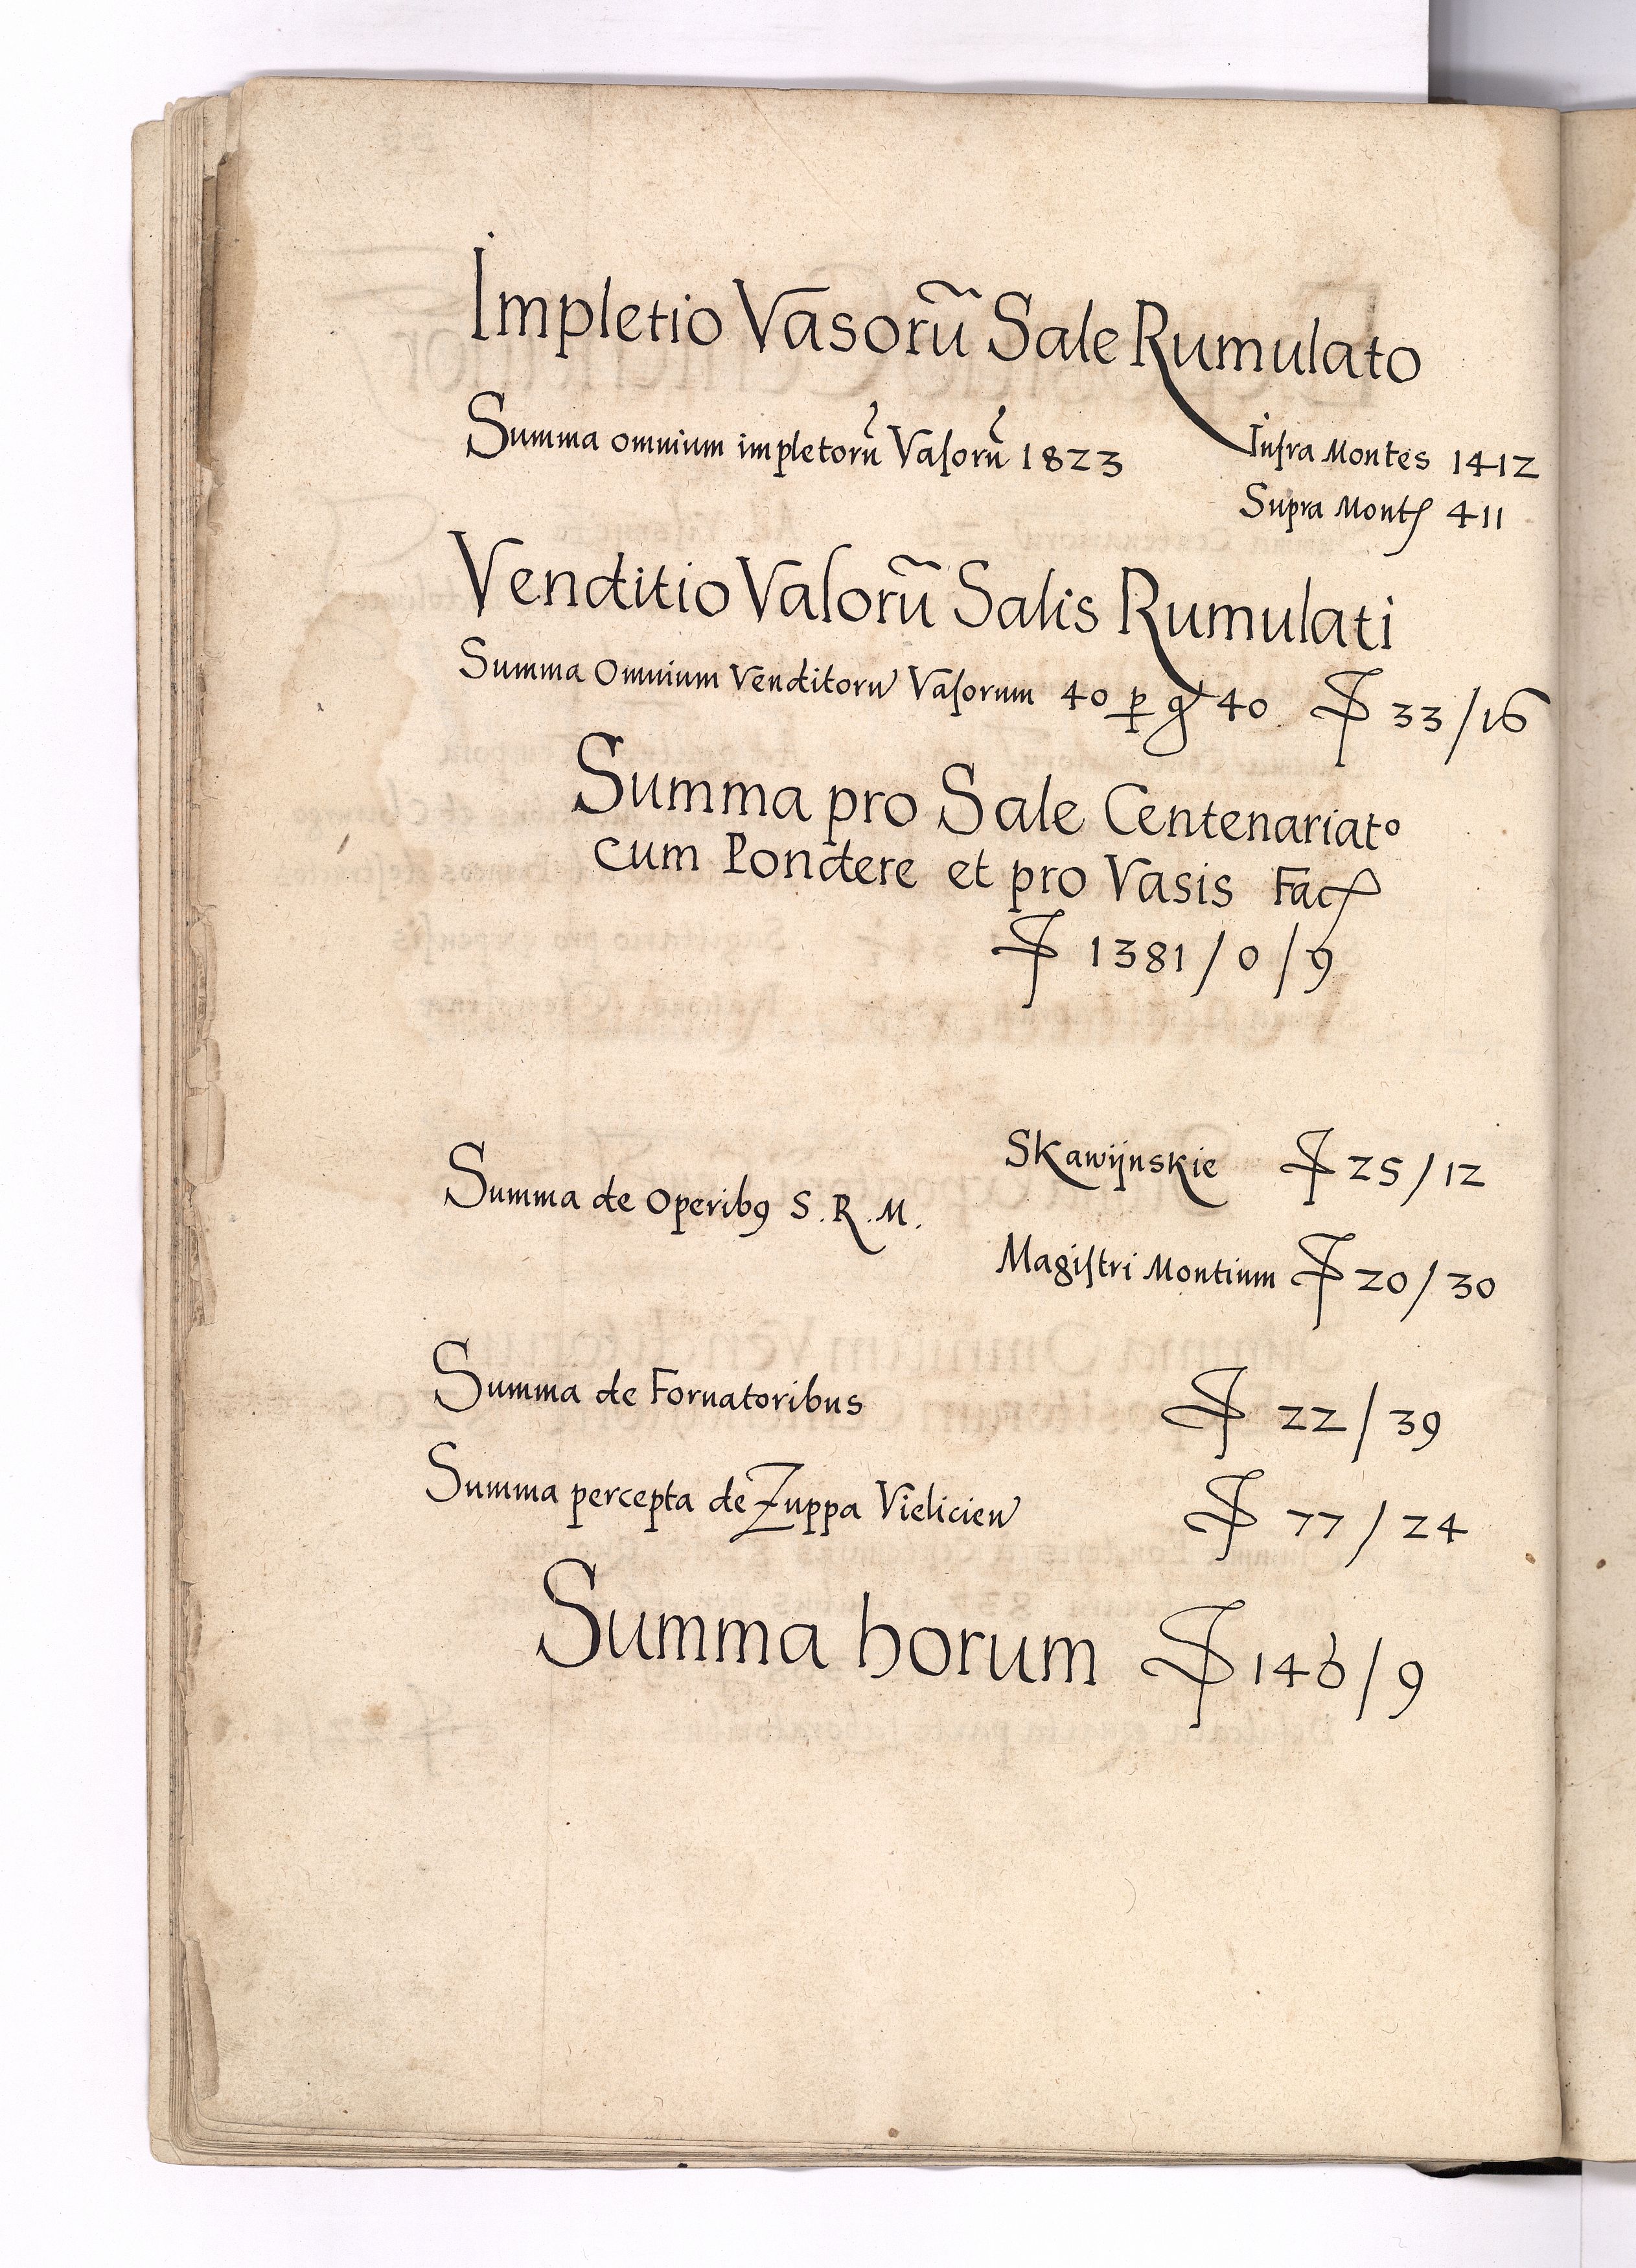 Impletio Vasorũ Sale Rumulato
Summa omnium impletorũ Vasorũ 1823 Infra Montes 1412
Supra Montꝭ 411
Venditio Vasorũ Salis Rumulati
Summa Omnium Venditoru Vasorum 40 ꝑ gͬ 40 33/16
Summa pro Sale Centenariato
cum Pondere et pro Vasis Facꝭ
1381/0/9
Skawijnskie 25/12
Summa de Operibꝰ S.R.M.
Magistri Montium 20/30
Summa de Fornatoribus 22/39
Summa percepta de Zuppa Vielicien 77/24
Summa horum 146/9